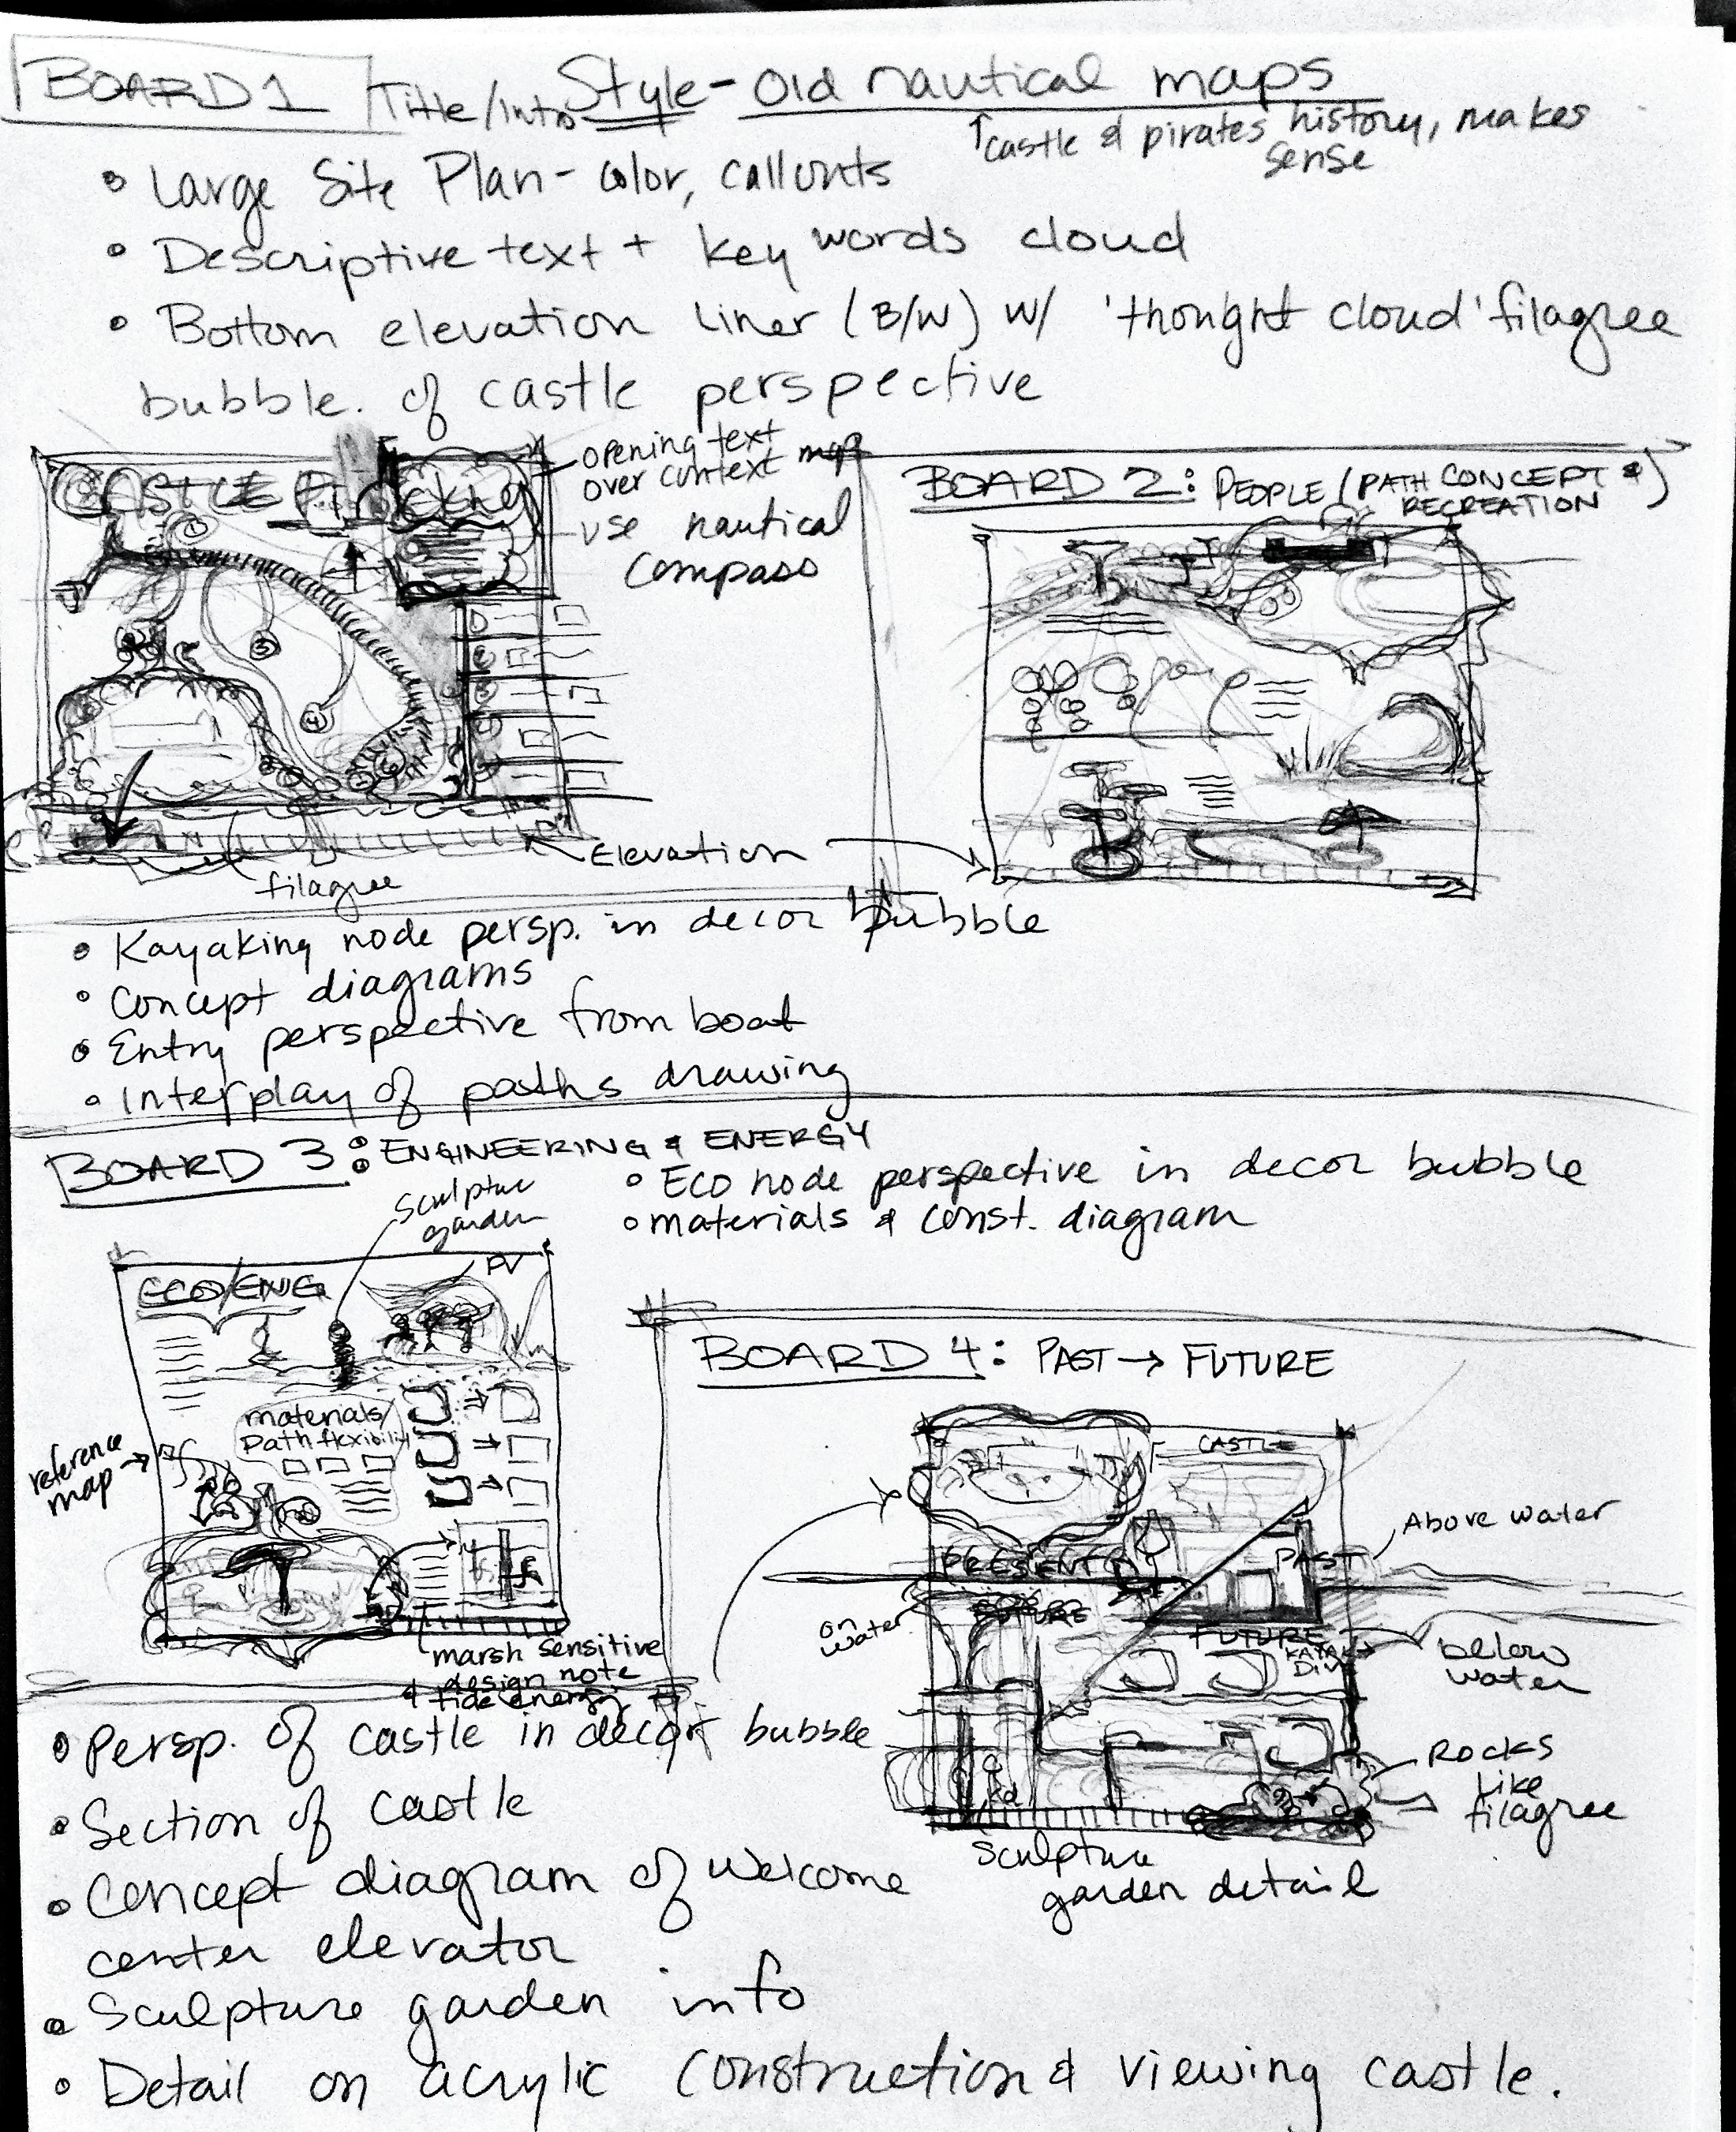 BOARD 1
Title/Intro Style - Old nautical maps
↑ castle & pirates history, makes
sense
• Large Site Plan - color, callouts
• Descriptive text + key words cloud
• Bottom elevation liner (B/W) w/ 'thought cloud' filagree
bubble. of castle perspective
CASTLE
opening text
over context map
use nautical
compass
1
2
3
4
filagree
Elevation
BOARD 2: PEOPLE (PATH CONCEPT &
RECREATION)
• Kayaking node persp. in decor bubble
• Concept diagrams
• Entry perspective from boat
• Interplay of paths drawing
BOARD 3: ENGINEERING & ENERGY
• Eco node perspective in decor bubble
• materials & const. diagram
sculpture
garden
PV
ECO/ENG
materials/
Path flexibility
reference
map →
marsh sensitive
design note
& tide energy
BOARD 4: PAST → FUTURE
CASTLE
Above water
PRESENT
PAST
on
water
FUTURE
FUTURE
KAYAK
DIVE
below
water
ROCKS
like
filagree
Sculpture
garden detail
• Persp. of castle in decor bubble
• Section of castle
• Concept diagram of welcome
center elevator
• Sculpture garden info
• Detail on acrylic construction & viewing castle.